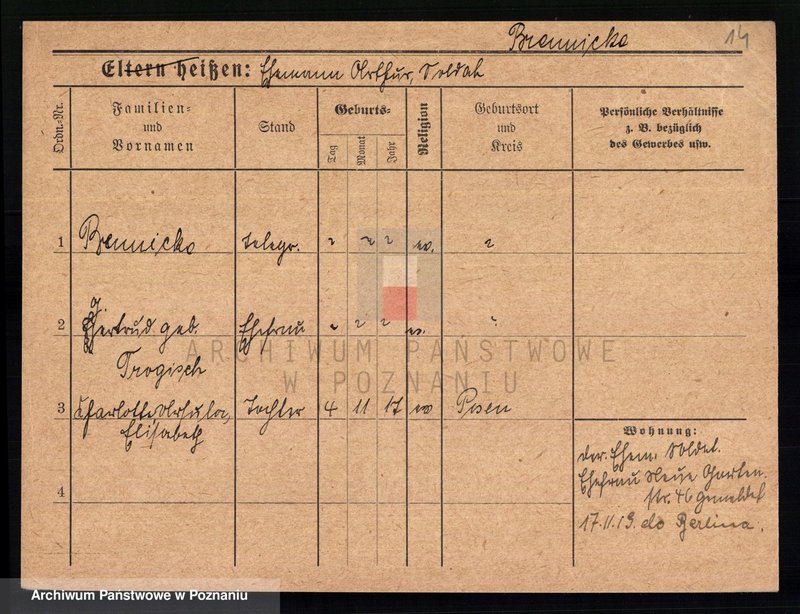 Brennicke 14
Eltern heißen: Ehemann Arthur, Soldat
Ordn.-Nr.
Familien-
und
Vornamen
Stand
Geburts-
Tag
Monat
Jahr
Religion
Geburtsort
und
Kreis
Persönliche Verhältnisse
z. B. bezüglich
des Gewerbes usw.
1 Brennicke Telegr. ? ? ? ev. ?
2 Gertrud geb. Ehefrau ? ? ? ev. ?
Trogisch
3 Charlotte Ursula, Tochter 4 11 17 ev Posen
Elisabeth
4
Wohnung:
der Ehem. Soldat.
Ehefrau Neue Garten
str. 46 gemeldet
17.11.19. Berlina.
ARCHIWUM PAŃSTWOWE
W POZNANIU
Archiwum Państwowe w Poznaniu